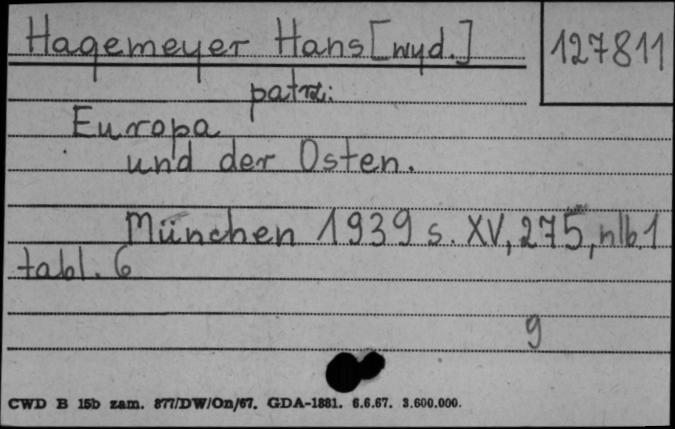 Hagemeyer Hans [wyd.]
127811
patrz:
Europa
und der Osten.
München 1939 s. XV, 275, nlb. 1
tabl. 6
9
CWD B 15b zam. 877/DW/On/67. GDA-1881. 6.6.67. 3.600.000.